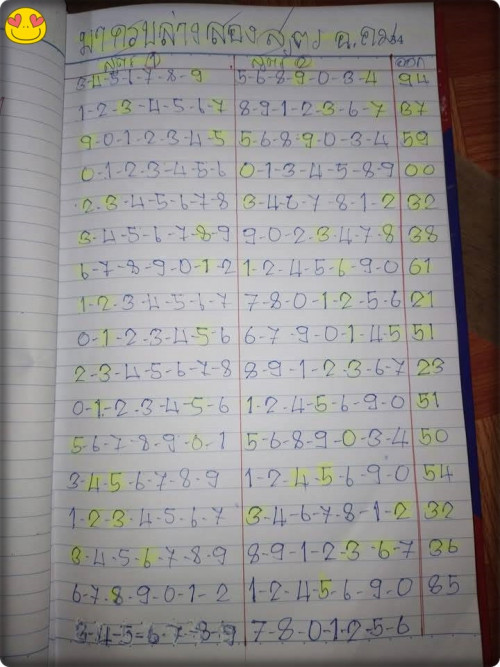 มาครบล่างสองสูตร อ.คน
สูตร 1 สูตร 2 ออก
3-4-5-6-7-8-9 5-6-8-9-0-3-4 94
1-2-3-4-5-6-7 8-9-1-2-3-6-7 37
9-0-1-2-3-4-5 5-6-8-9-0-3-4 59
0-1-2-3-4-5-6 0-1-3-4-5-8-9 00
2-3-4-5-6-7-8 3-4-6-7-8-1-2 32
3-4-5-6-7-8-9 9-0-2-3-4-7-8 38
6-7-8-9-0-1-2 1-2-4-5-6-9-0 61
1-2-3-4-5-6-7 7-8-0-1-2-5-6 21
0-1-2-3-4-5-6 6-7-9-0-1-4-5 51
2-3-4-5-6-7-8 8-9-1-2-3-6-7 23
0-1-2-3-4-5-6 1-2-4-5-6-9-0 51
5-6-7-8-9-0-1 5-6-8-9-0-3-4 50
3-4-5-6-7-8-9 1-2-4-5-6-9-0 54
1-2-3-4-5-6-7 3-4-6-7-8-1-2 32
3-4-5-6-7-8-9 8-9-1-2-3-6-7 36
6-7-8-9-0-1-2 1-2-4-5-6-9-0 85
3-4-5-6-7-8-9 7-8-0-1-2-5-6